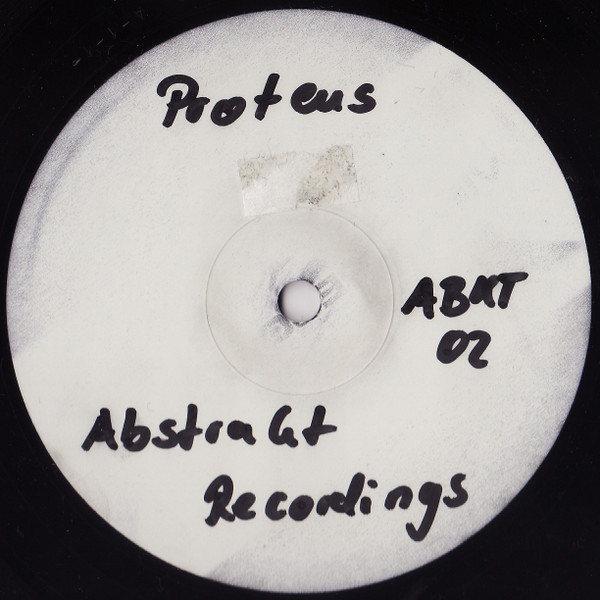 Proteus
ABKT
02
Abstrakt
Recordings